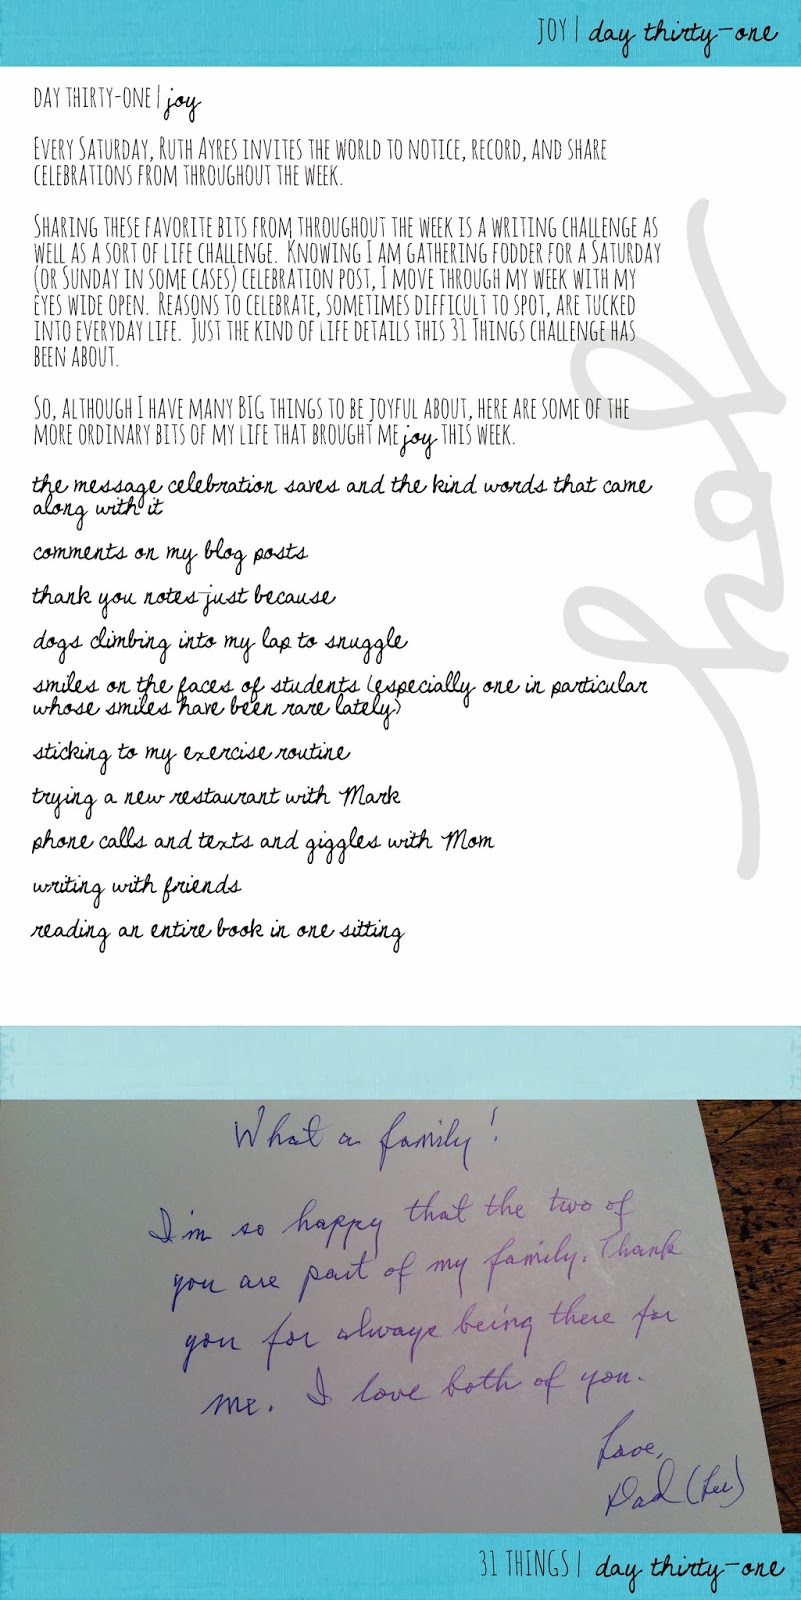 JOY | day thirty-one
DAY THIRTY-ONE | joy
EVERY SATURDAY, RUTH AYRES INVITES THE WORLD TO NOTICE, RECORD, AND SHARE
CELEBRATIONS FROM THROUGHOUT THE WEEK.
SHARING THESE FAVORITE BITS FROM THROUGHOUT THE WEEK IS A WRITING CHALLENGE AS
WELL AS A SORT OF LIFE CHALLENGE. KNOWING I AM GATHERING FODDER FOR A SATURDAY
(OR SUNDAY IN SOME CASES) CELEBRATION POST, I MOVE THROUGH MY WEEK WITH MY
EYES WIDE OPEN. REASONS TO CELEBRATE, SOMETIMES DIFFICULT TO SPOT, ARE TUCKED
INTO EVERYDAY LIFE. JUST THE KIND OF LIFE DETAILS THIS 31 THINGS CHALLENGE HAS
BEEN ABOUT.
SO, ALTHOUGH I HAVE MANY BIG THINGS TO BE JOYFUL ABOUT, HERE ARE SOME OF THE
MORE ORDINARY BITS OF MY LIFE THAT BROUGHT ME joy THIS WEEK.
the message celebration saves and the kind words that came
along with it
comments on my blog posts
thank you notes-just because
dogs climbing into my lap to snuggle
smiles on the faces of students (especially one in particular
whose smiles have been rare lately)
sticking to my exercise routine
trying a new restaurant with Mark
phone calls and texts and giggles with Mom
writing with friends
reading an entire book in one sitting
Joy
What a family!
I'm so happy that the two of
you are part of my family. Thank
you for always being there for
me. I love both of you.
Love,
Dad (Lee)
31 THINGS | day thirty-one